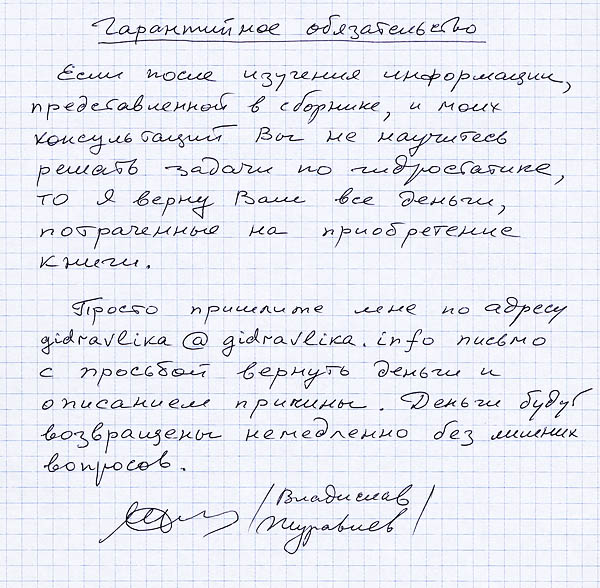 Гарантийное обязательство
Если после изучения информации,
представленной в сборнике, и моих
консультаций Вы не научитесь
решать задачи по гидростатике,
то я верну Вам все деньги,
потраченные на приобретение
книги.
Просто пришлите мне по адресу
gidravlika@gidravlika.info письмо
с просьбой вернуть деньги и
описанием причины. Деньги будут
возвращены немедленно без лишних
вопросов.
/Владислав
Журавлев/